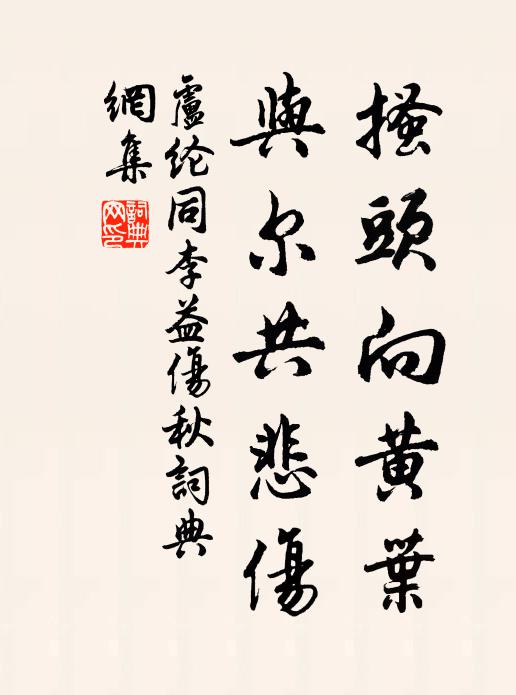 搔頭向黃葉
與尔共悲傷
盧纶同李益傷秋詞典
網集
詞典網印